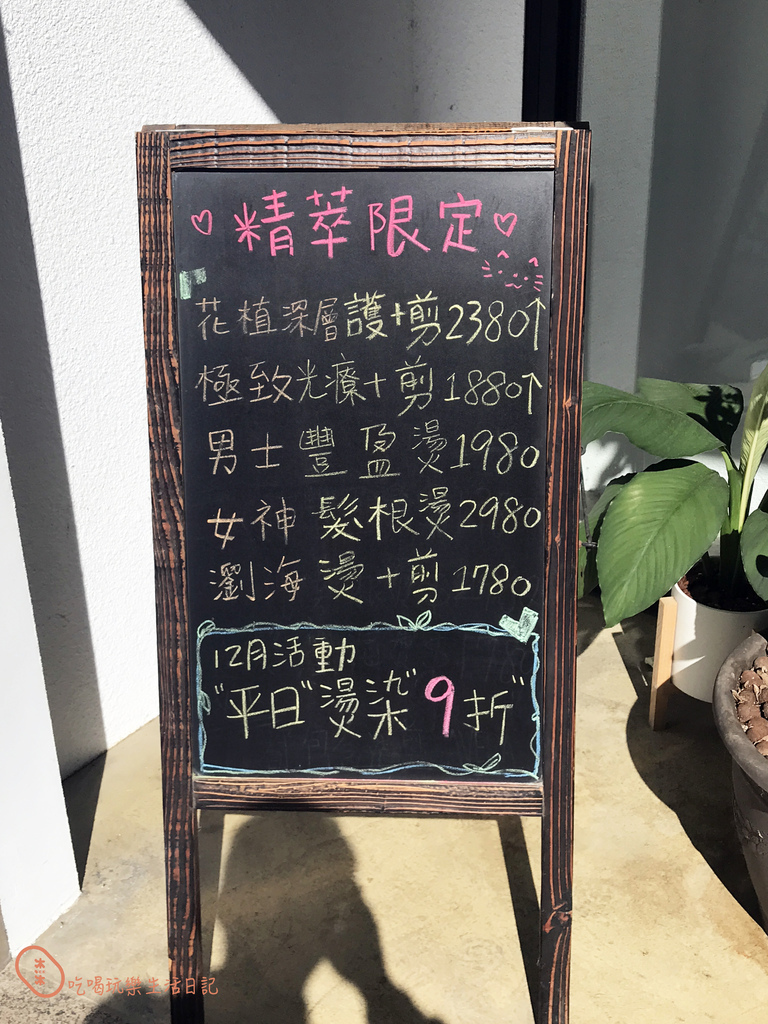 ♡精萃限定♡
花植深層護+剪2380↑
極致光療+剪1880↑
男士豐盈燙1980
女神髮根燙2980
瀏海燙+剪1780
12月活動
"平日"燙染"9折"
吃喝玩樂生活日記